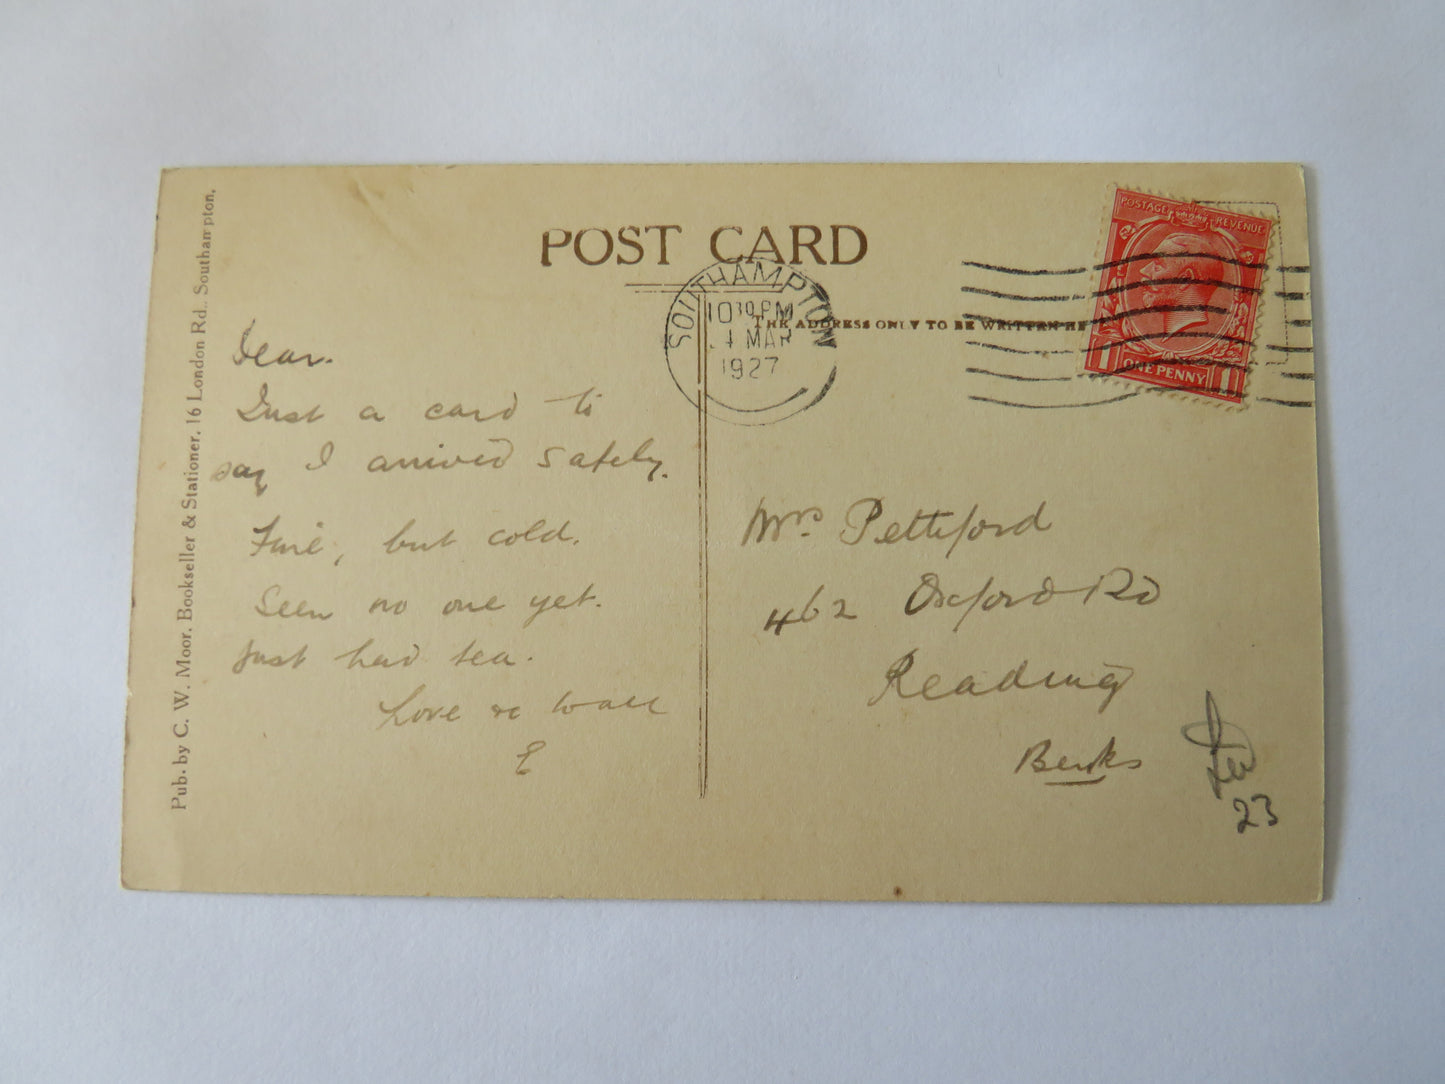 POST CARD
THE ADDRESS ONLY TO BE WRITTEN HE
POSTAGE REVENUE
1 ONE PENNY 1
SOUTHAMPTON
10 30 PM
4 MAR
1927
Pub. by C. W. Moor. Bookseller & Stationer. 16 London Rd.. Southampton.
Dear.
Just a card to
say I arrived safely.
Fine, but cold.
Seen no one yet.
Just had tea.
Love to all
E
Mrs Pettiford
462 Oxford Rd
Reading
Berks
23